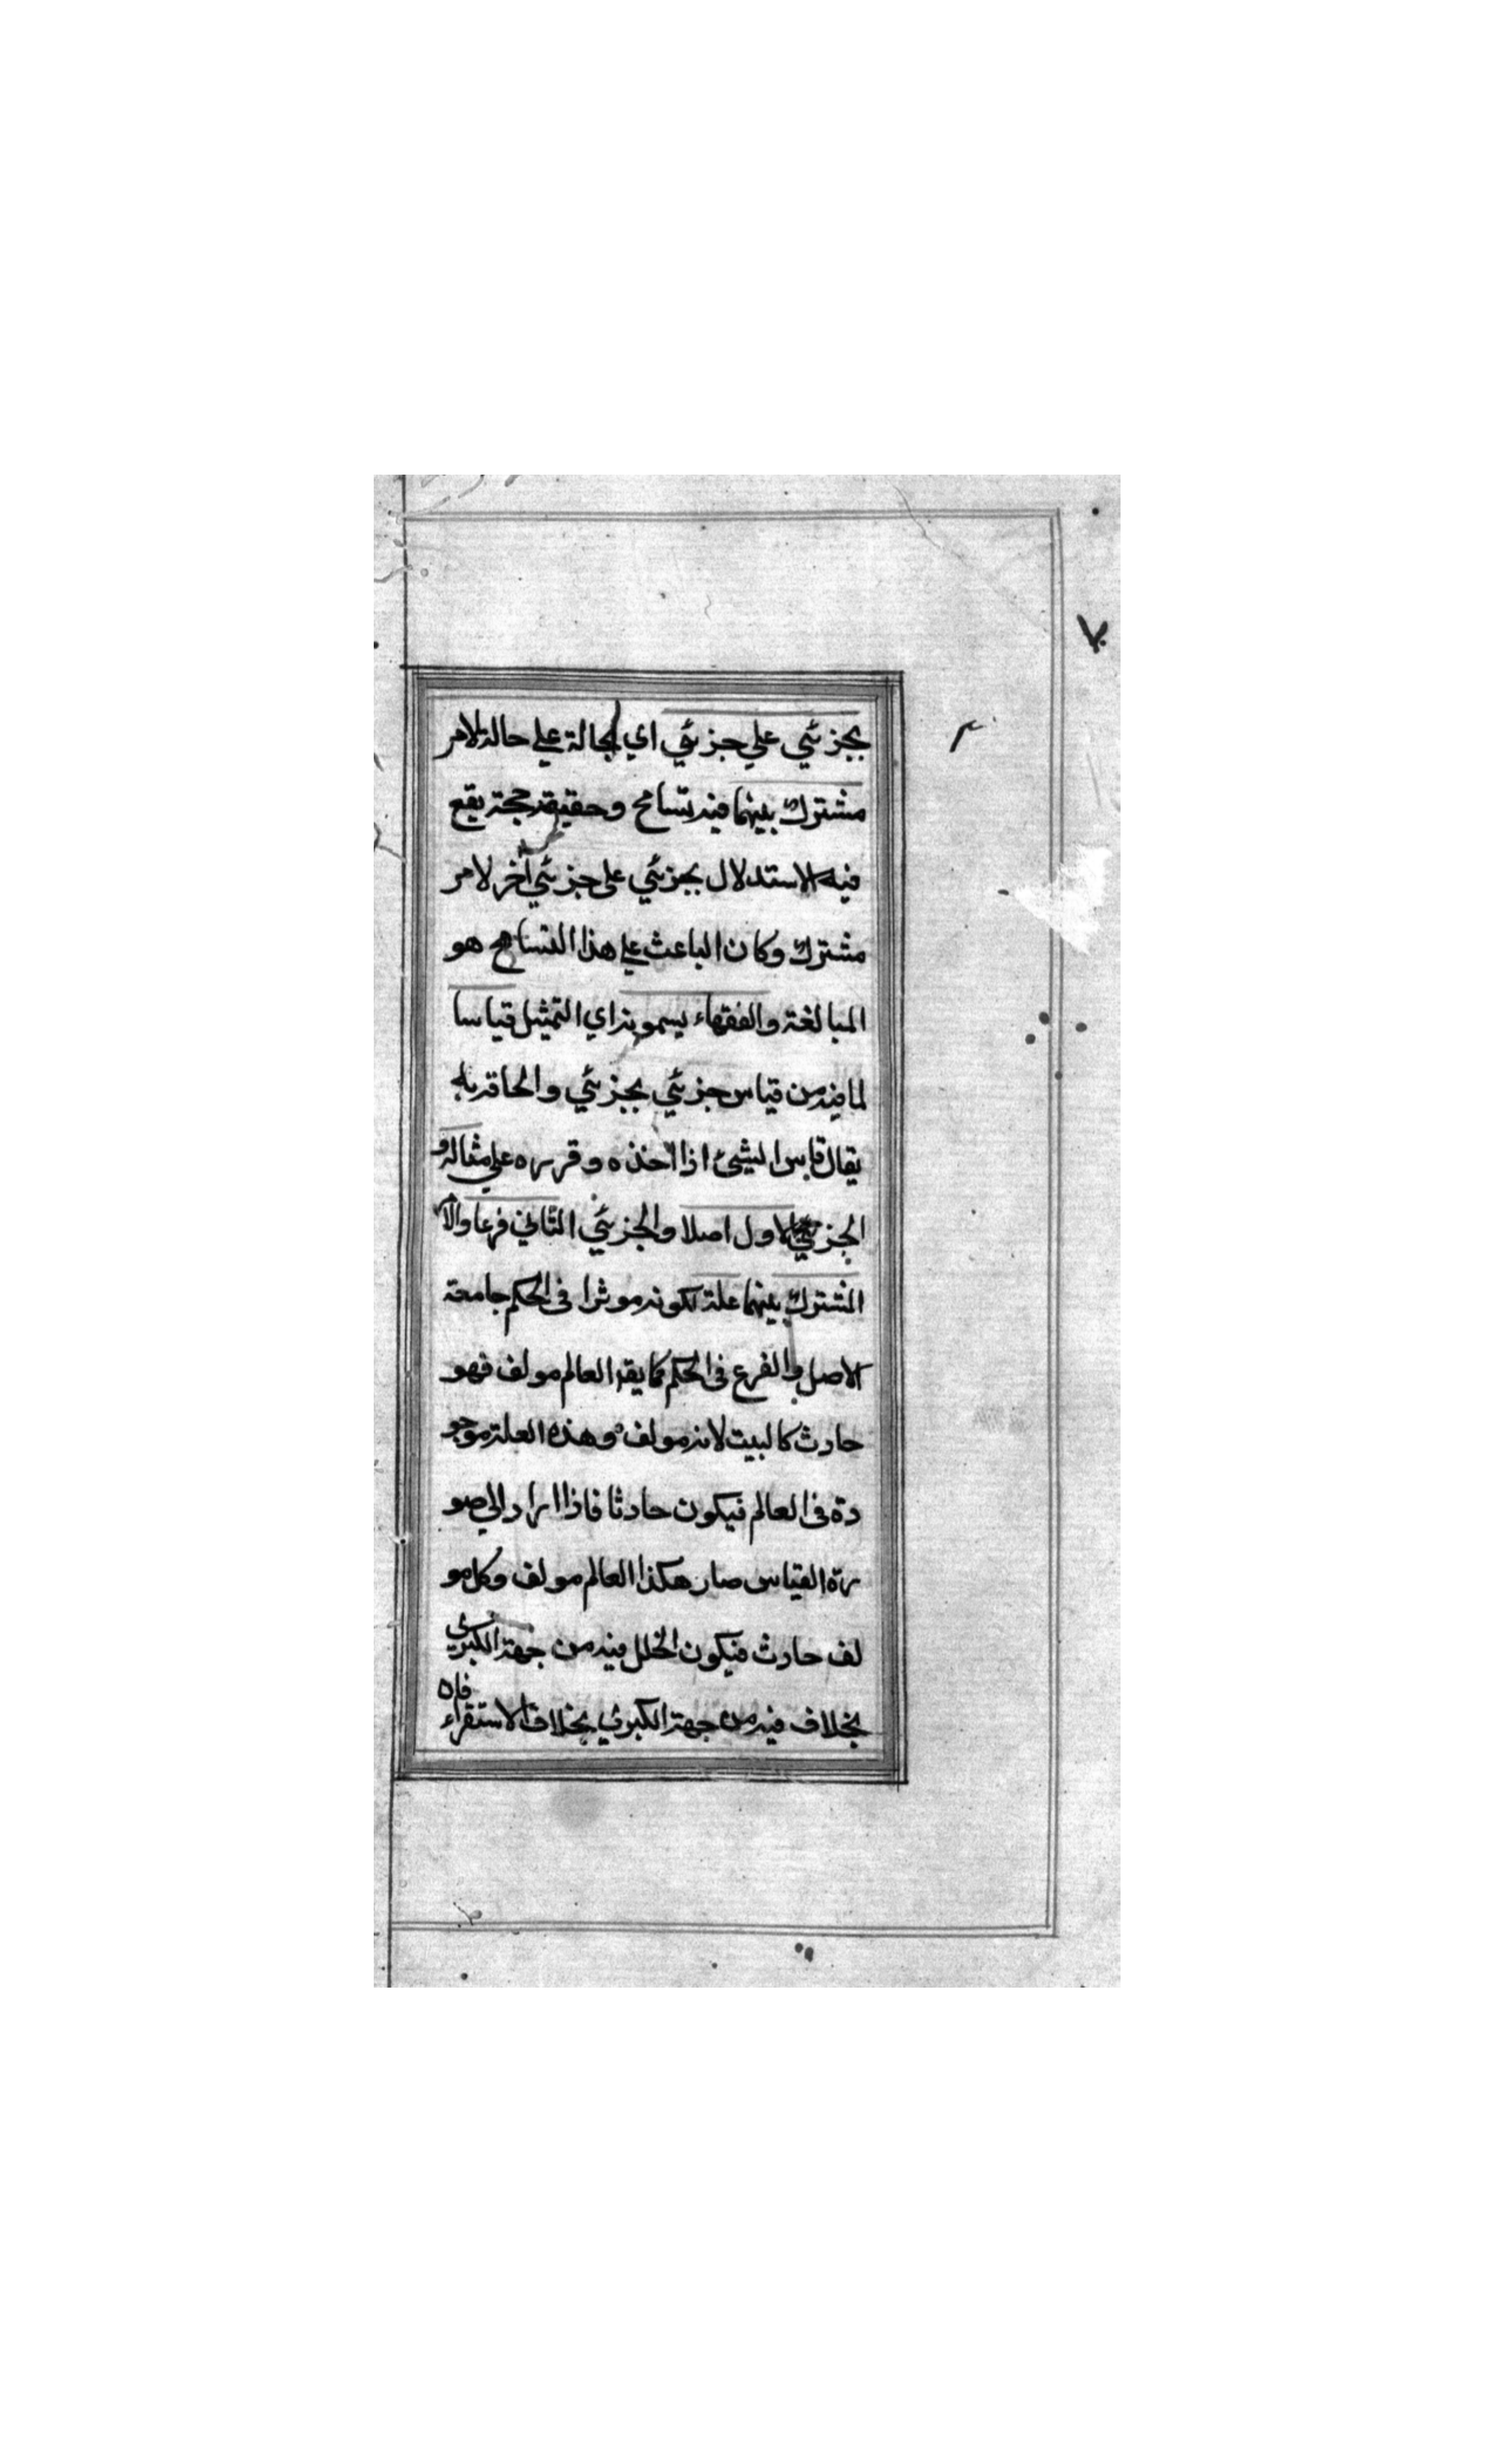 ٧
بجزئي علي جزئي اي بحالة علي حالة لامر
مشترك بينهما فيه تسامح وحقيقته حجة يقع
فيه الاستدلال بجزئي على جزئي آخر لامر
مشترك وكان الباعث علي هذا التسامح هو
المبالغة والفقهاء يسمونه اي التمثيل قياسا
لما فيه من قياس جزئي بجزئي والحاقه به
يقال قاس الشيئ اذا اخذه وقرره علي مثاله و
الجزئي الاول اصلا والجزئي الثاني فرعا والامر
المشترك بينهما علة لكونه موثرا فى الحكم جامعة
الاصل والفرع فى الحكم كما يقه العالم مولف فهو
حادث كالبيت لانه مولف وهذه العلة موجو
دة فى العالم فيكون حادثا فاذا اراد الي صو
رة القياس صار هكذا العالم مولف وكل مو
لف حادث فيكون الخلل فيه من جهة الكبرى
بخلاف فيه من جهة الكبرى بخلاف الاستقراء فان